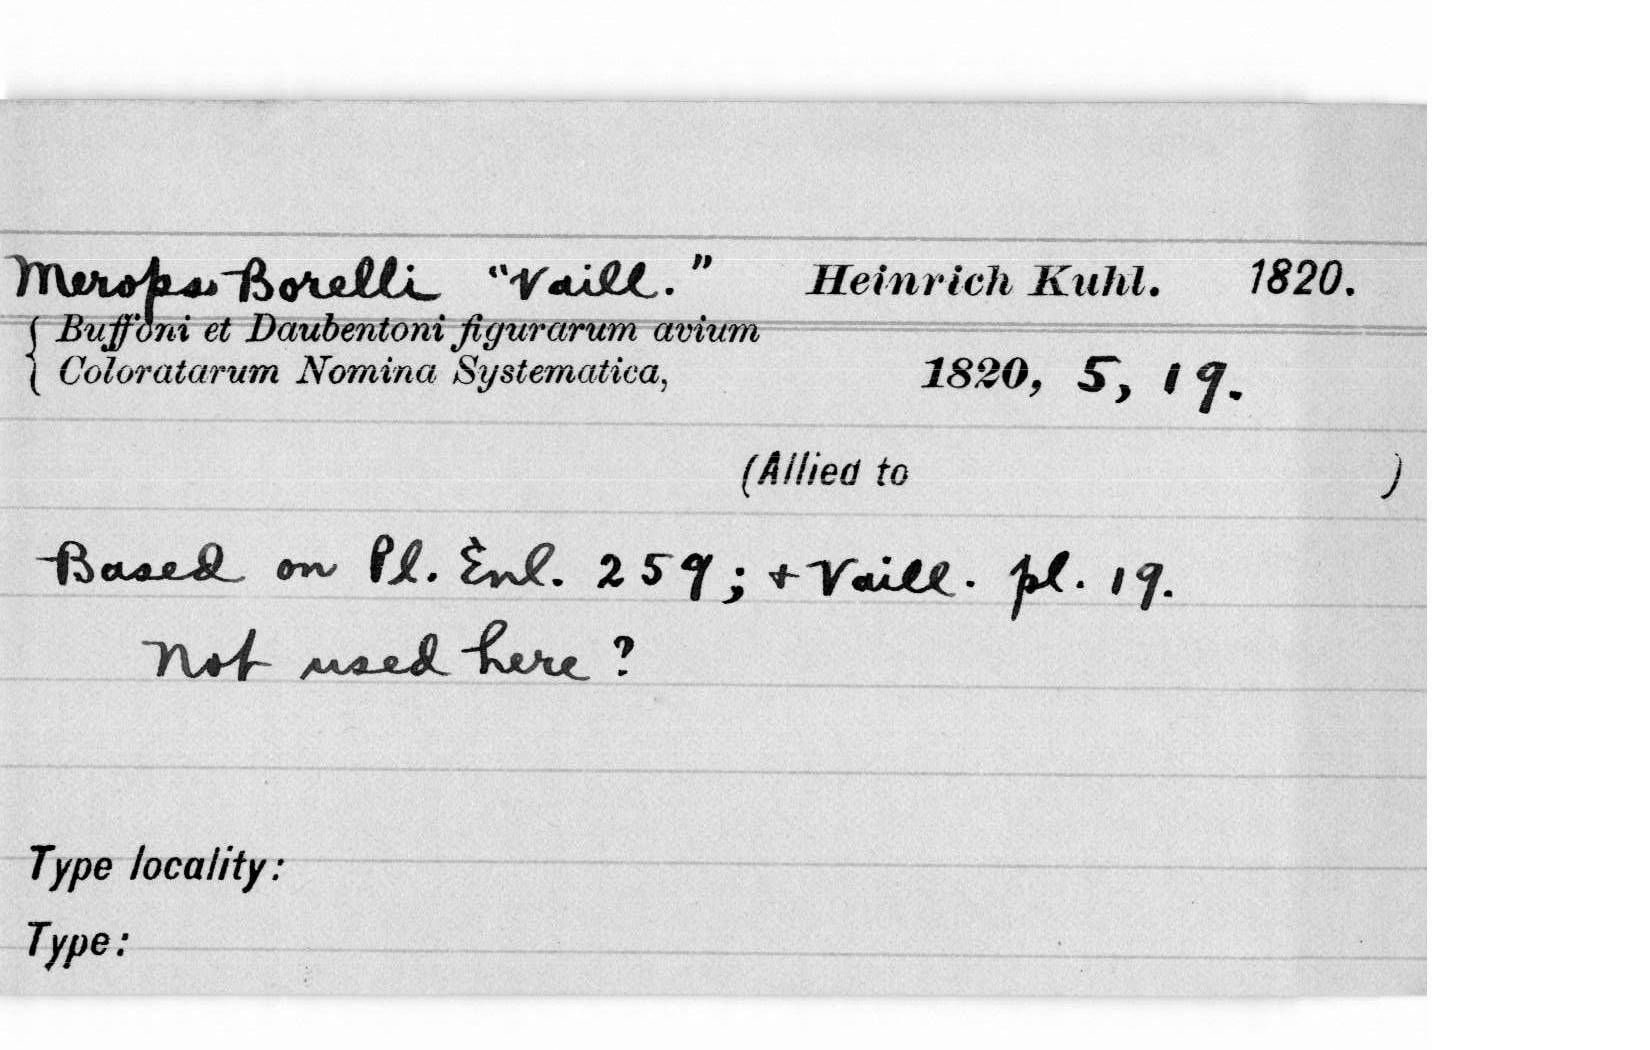 Merops Borelli "Vaill." Heinrich Kuhl. 1820.
Buffoni et Daubentoni figurarum avium
Coloratarum Nomina Systematica, 1820, 5, 19.
(Allied to )
Based on Pl. Enl. 259; + Vaill. pl. 19.
Not used here?
Type locality:
Type: